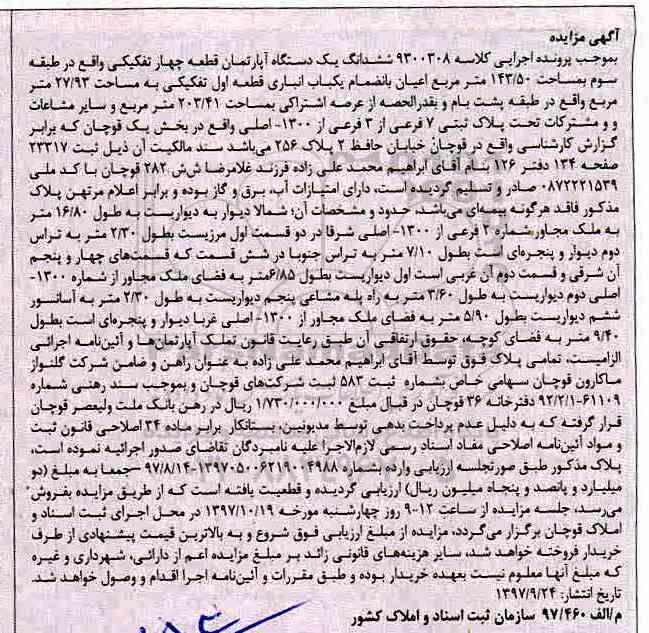 آگهی مزایده
بموجب پرونده اجرایی کلاسه ۹۳۰۰۳۰۸ ششدانگ یک دستگاه آپارتمان قطعه چهار تفکیکی واقع در طبقه
سوم بمساحت ۱۴۳/۵۰ متر مربع اعیان بانضمام یکباب انباری قطعه اول تفکیکی به مساحت ۲۷/۹۳ متر
مربع واقع در طبقه پشت بام و بقدرالحصه از عرصه اشتراکی بمساحت ۲۰۳/۴۱ متر مربع و سایر مشاعات
و و مشترکات تحت پلاک ثبتی ۷ فرعی از ۳ فرعی از ۱۳۰۰- اصلی واقع در بخش یک قوچان که برابر
گزارش کارشناسی واقع در قوچان خیابان حافظ ۲ پلاک ۲۵۶ می‌باشد سند مالکیت آن ذیل ثبت ۲۳۳۱۷
صفحه ۱۳۴ دفتر ۱۲۶ بنام آقای ابراهیم محمد علی زاده فرزند غلامرضا ش‌ش ۲۸۲ قوچان با کد ملی
۰۸۷۲۲۲۱۵۳۹ صادر و تسلیم گردیده است، دارای امتیازات آب، برق و گاز بوده و برابر اعلام مرتهن پلاک
مذکور فاقد هرگونه بیمه‌ای می‌باشد، حدود و مشخصات آن؛ شمالا دیوار به دیواریست به طول ۱۶/۸۰ متر
به ملک مجاور شماره ۲ فرعی از ۱۳۰۰- اصلی شرقا در دو قسمت اول مرزیست بطول ۲/۳۰ متر به تراس
دوم دیوار و پنجره‌ای است بطول ۷/۱۰ متر به تراس جنوبا در شش قسمت که قسمت‌های چهار و پنجم
آن شرقی و قسمت دوم آن غربی است اول دیواریست بطول ۶/۸۵متر به فضای ملک مجاور از شماره ۱۳۰۰-
اصلی دوم دیواریست به طول ۳/۶۰ متر به راه پله مشاعی پنجم دیواریست به طول ۲/۳۰ متر به آسانسور
ششم دیواریست بطول ۵/۹۰ متر به فضای ملک مجاور از ۱۳۰۰- اصلی غربا دیوار و پنجره‌ای است بطول
۹/۴۰ متر به فضای کوچه، حقوق ارتفاقی آن طبق رعایت قانون تملک آپارتمان‌ها و آئین‌نامه اجرائی
الزامیست، تمامی پلاک فوق توسط آقای ابراهیم محمد علی زاده به عنوان راهن و ضامن شرکت گلنواز
ماکارون قوچان سهامی خاص بشماره ثبت ۵۸۳ ثبت شرکت‌های قوچان و بموجب سند رهنی شماره
۶۱۱۰۹-۹۲/۲/۱ دفترخانه ۳۶ قوچان در قبال مبلغ ۱/۷۳۰/۰۰۰/۰۰۰ ریال در رهن بانک ملت ولیعصر قوچان
قرار گرفته که به دلیل عدم پرداخت بدهی توسط مدیونین، بستانکار برابر ماده ۳۴ اصلاحی قانون ثبت
و مواد آئین‌نامه اصلاحی مفاد اسناد رسمی لازم‌الاجرا علیه نامبردگان تقاضای صدور اجرائیه نموده است،
پلاک مذکور طبق صورتجلسه ارزیابی وارده بشماره ۱۳۹۷۰۵۰۰۶۲۱۹۰۰۴۹۸۸-۹۷/۸/۱۴ –جمعا به مبلغ (دو
میلیارد و پانصد و پنجاه میلیون ریال) ارزیابی گردیده و قطعیت یافته است که از طریق مزایده بفروش
می‌رسد، جلسه مزایده از ساعت ۱۲-۹ روز چهارشنبه مورخه ۱۳۹۷/۱۰/۱۹ در محل اجرای ثبت اسناد و
املاک قوچان برگزار می‌گردد، مزایده از مبلغ ارزیابی فوق شروع و به بالاترین قیمت پیشنهادی از طرف
خریدار فروخته خواهد شد، سایر هزینه‌های قانونی زائد بر مبلغ مزایده اعم از دارائی، شهرداری و غیره
که مبلغ آنها معلوم نیست بعهده خریدار بوده و طبق مقررات و آئین‌نامه اجرا اقدام و وصول خواهد شد.
تاریخ انتشار: ۱۳۹۷/۹/۲۴
م/الف ۹۷/۴۶۰ سازمان ثبت اسناد و املاک کشور